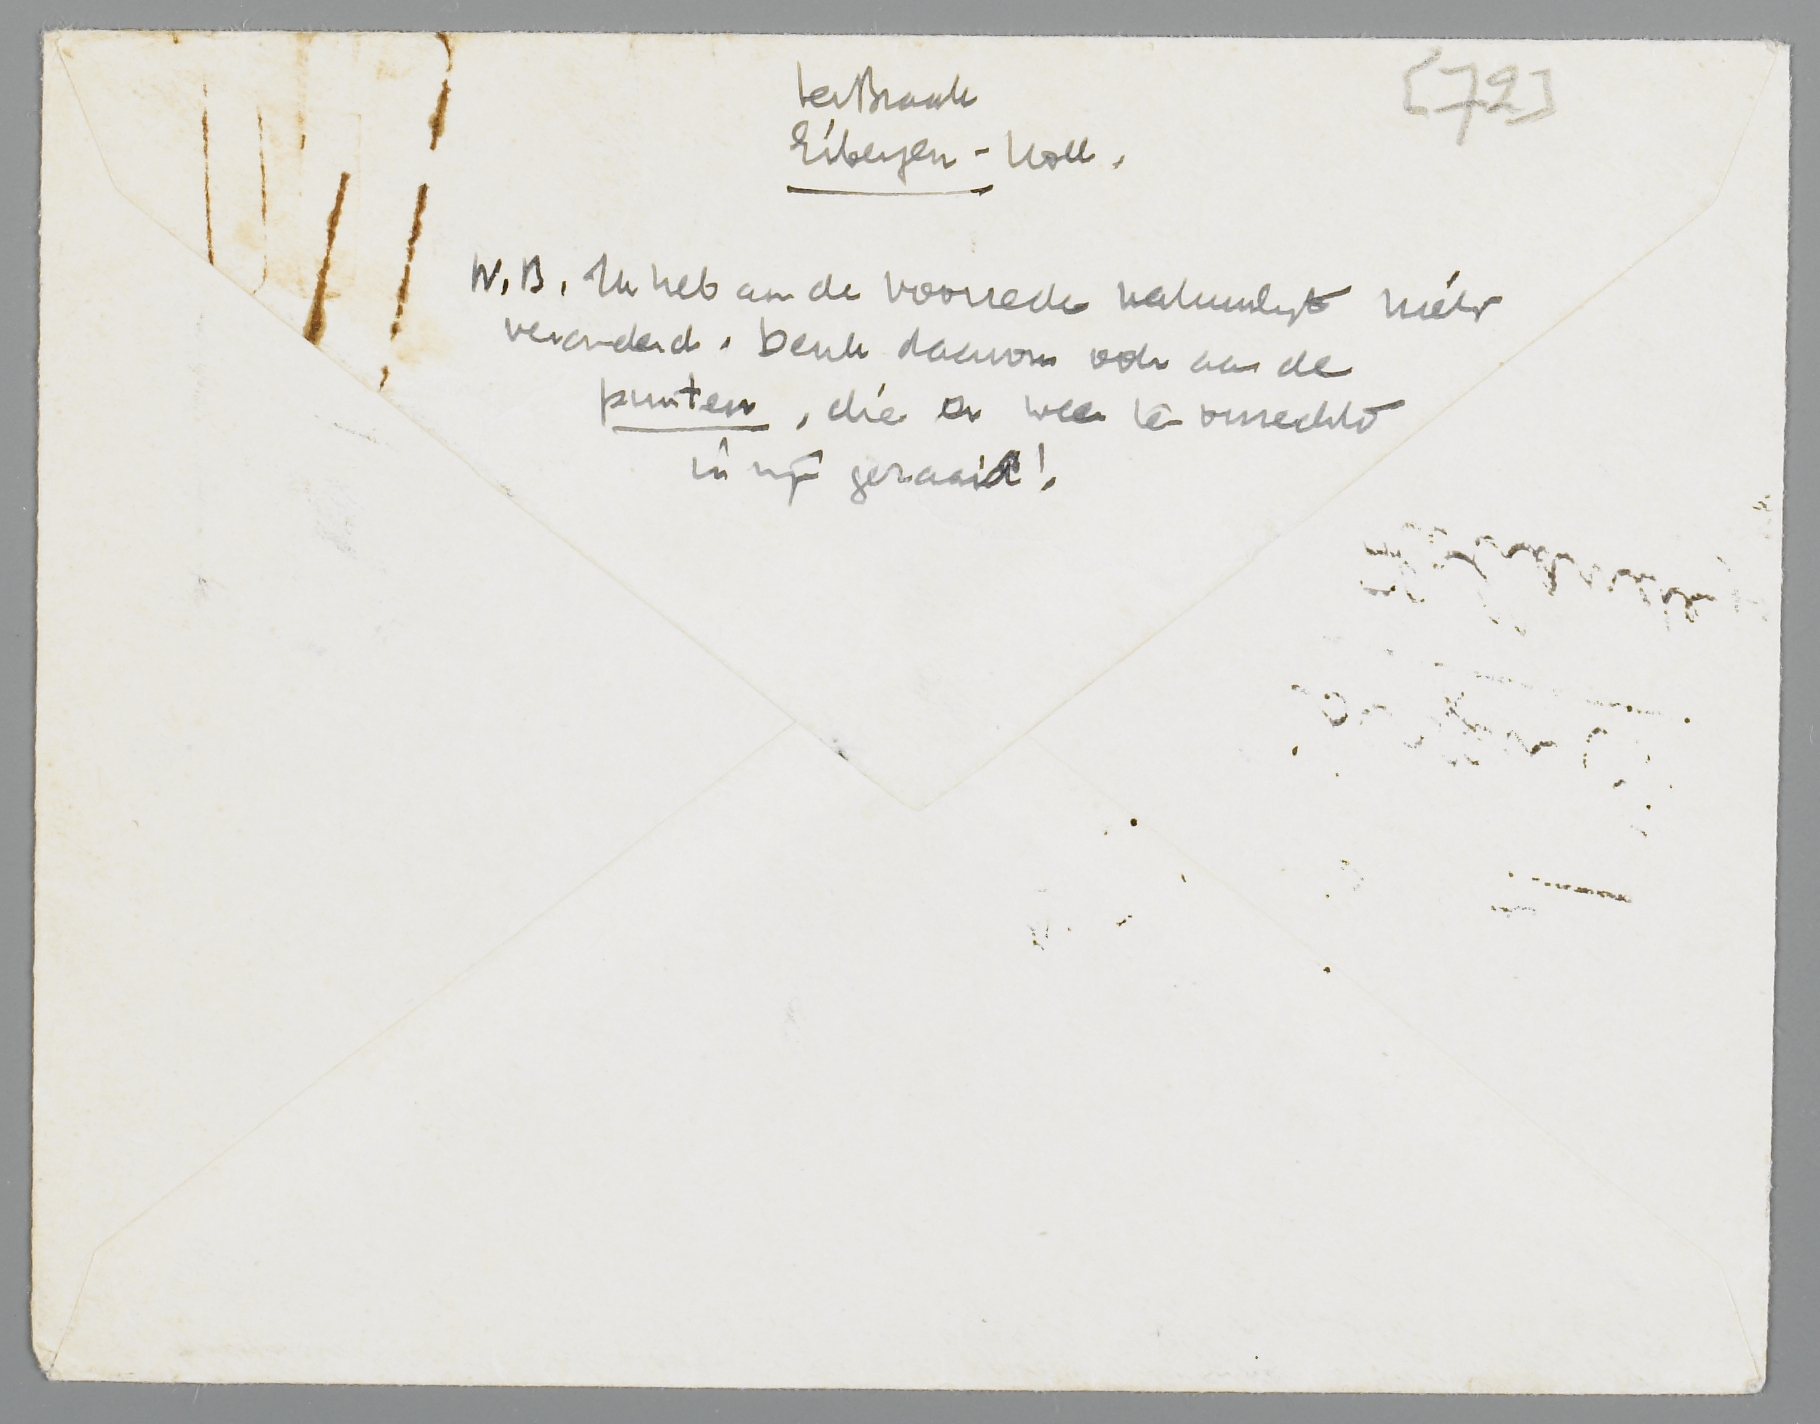 [72]
ter Braak
Eibergen - Holl.
N.B. Ik heb aan de voorrede natuurlijk niéts
veranderd. Denk daarom ook aan de
punten, die er weer ten onrechte
in zijn geraakt!